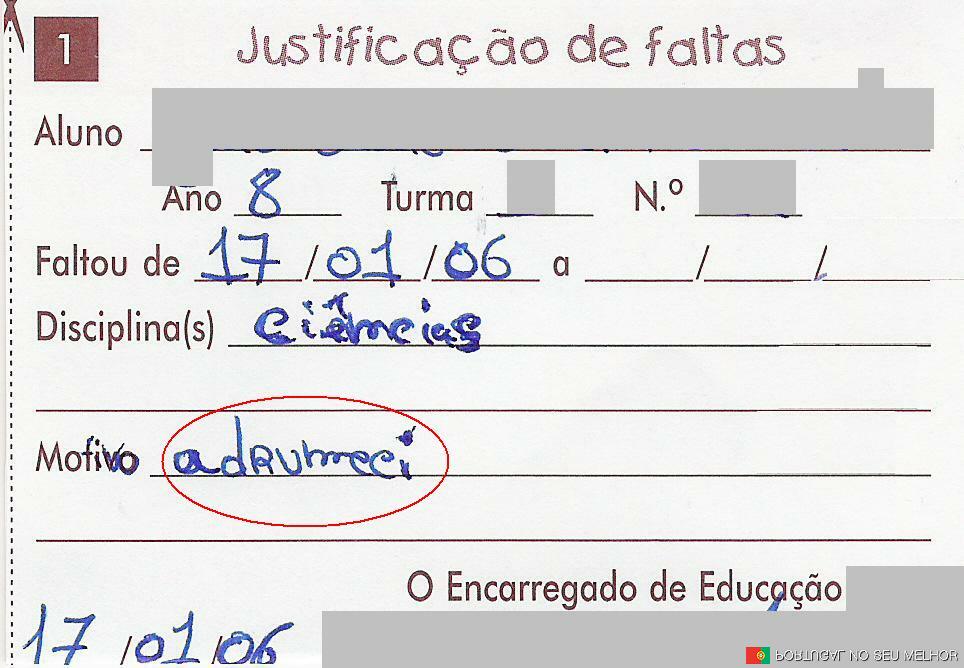 1
Justificação de faltas
Aluno
Ano 8 Turma N.º
Faltou de 17/01/06 a / /
Disciplina(s) Ciências
Motivo adrumeci
O Encarregado de Educação
17/01/06
PORTUGAL NO SEU MELHOR